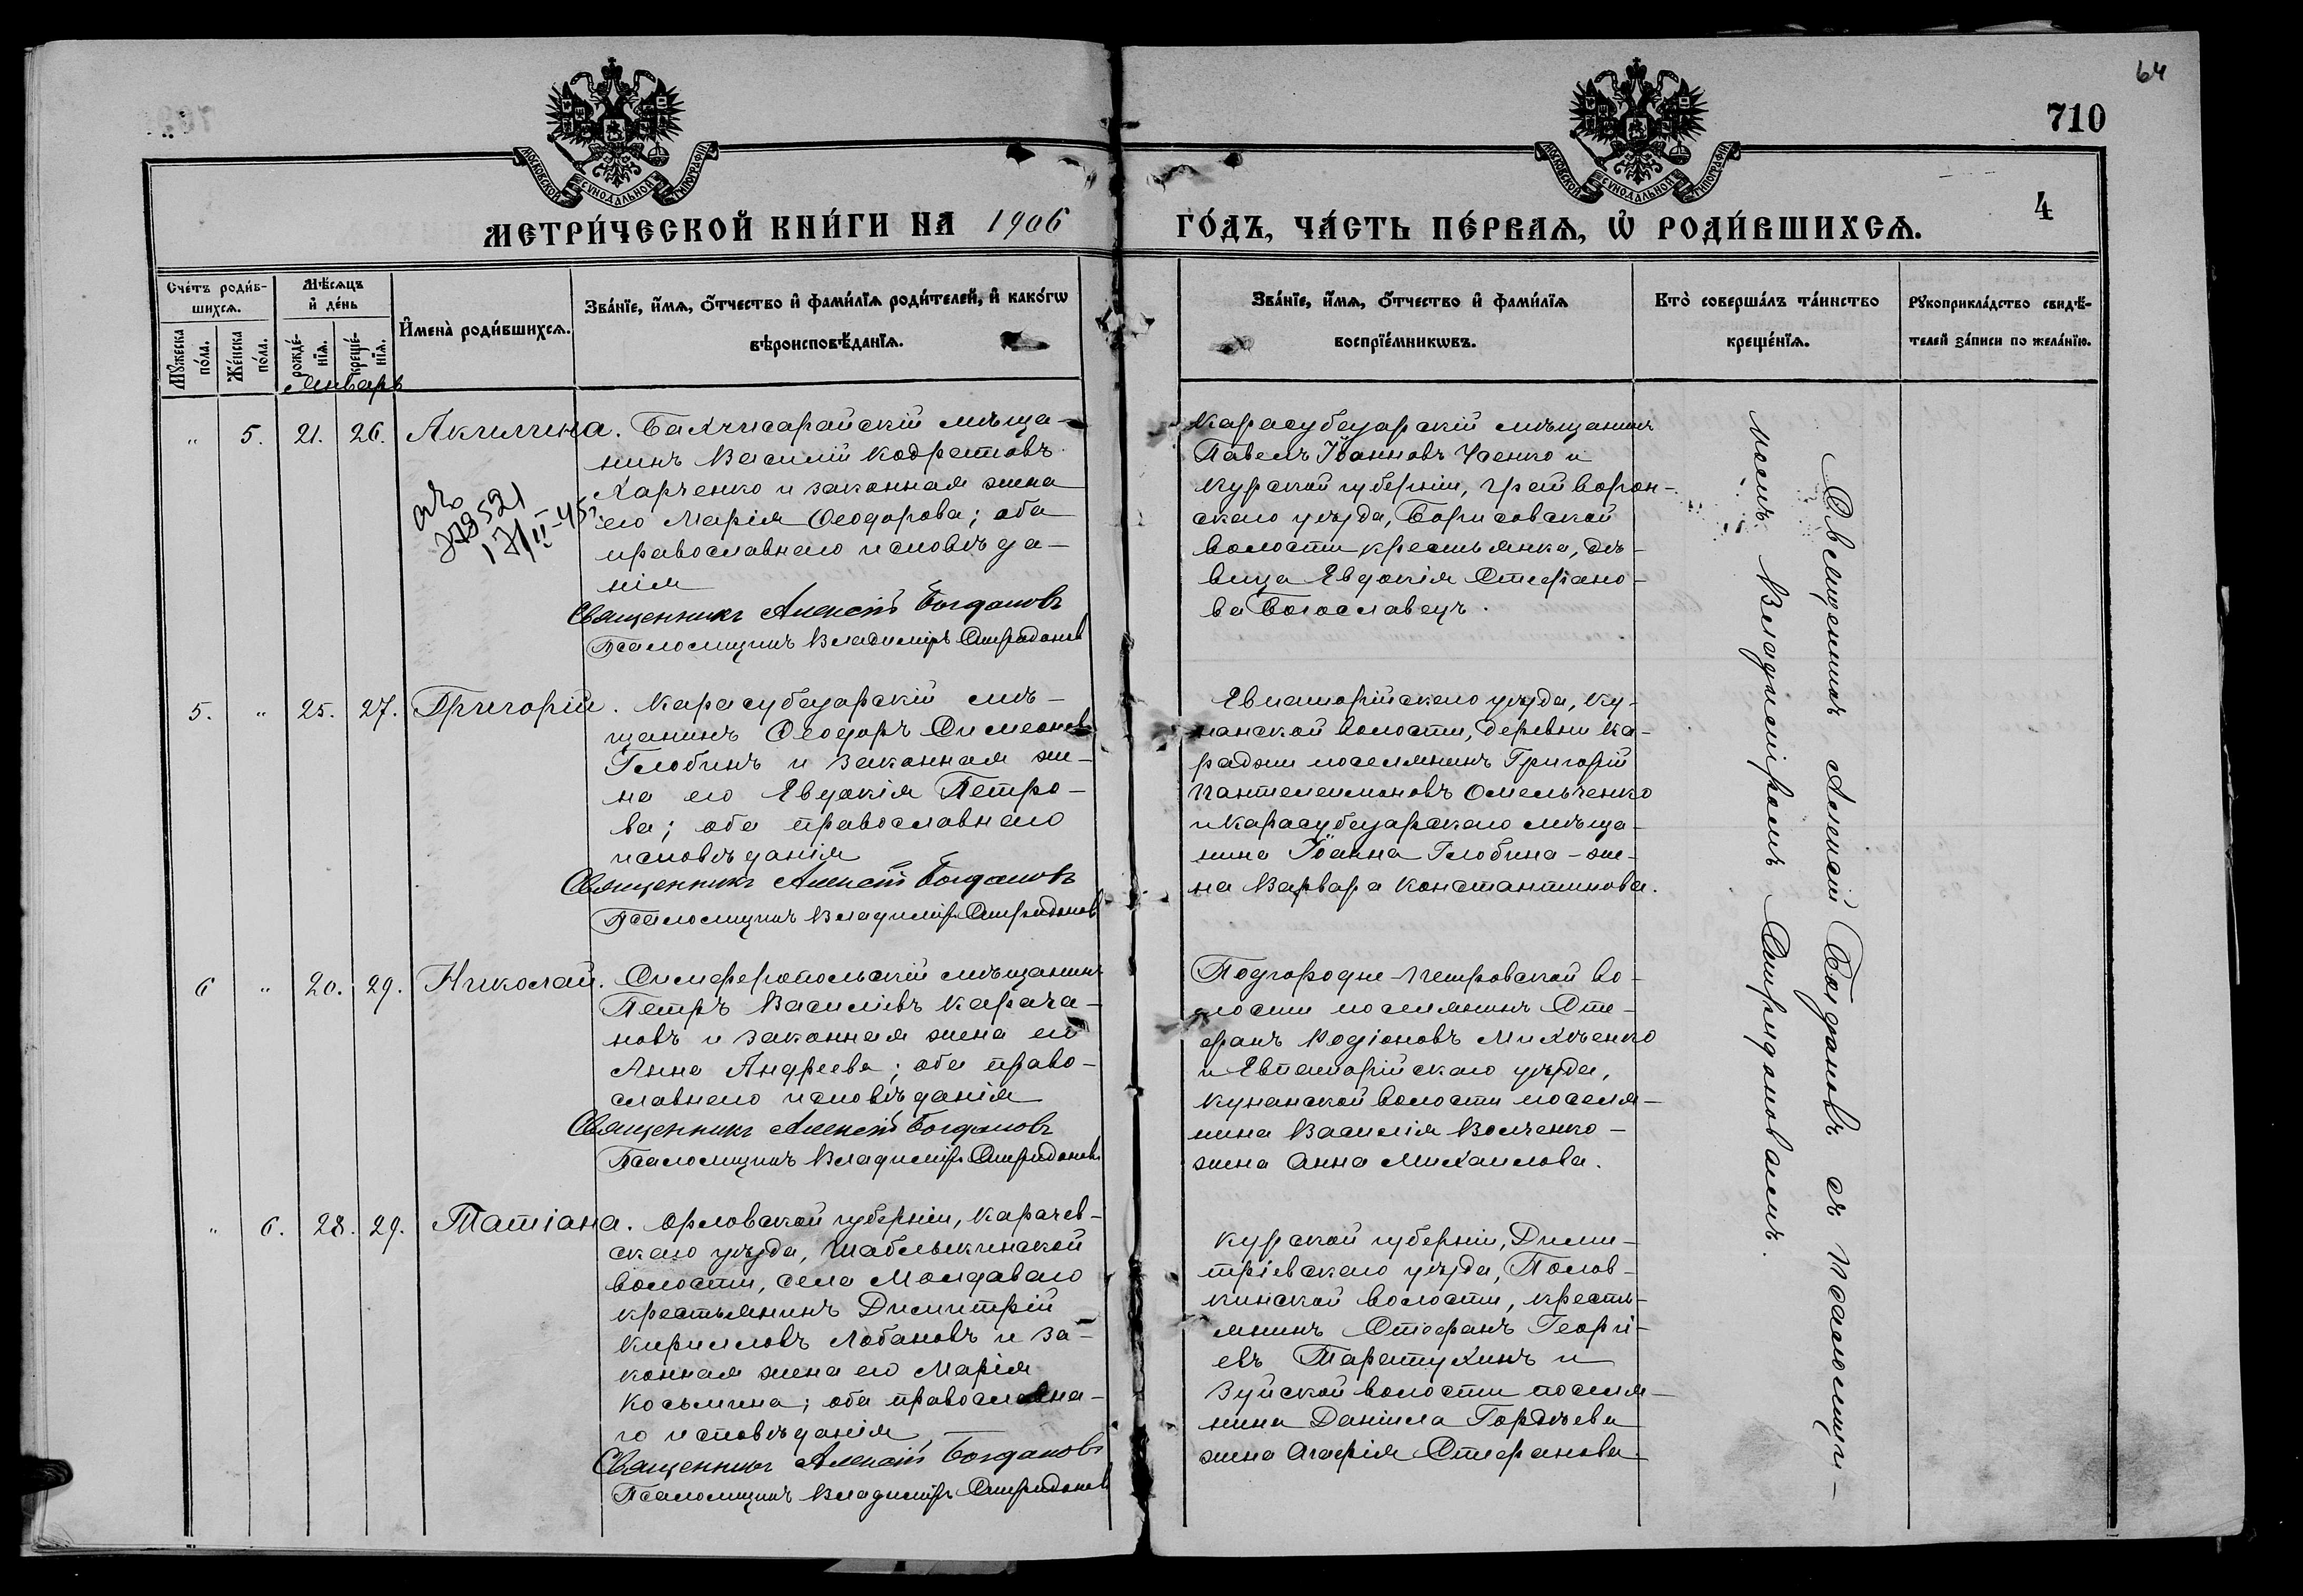 64
710
4
МОСКОВСКОЙ СУНОДАЛЬНОЙ ТИПОГРАФІИ
МОСКОВСКОЙ СУНОДАЛЬНОЙ ТИПОГРАФІИ
МЕТРИ́ЧЕСКОЙ КНИ́ГИ НА 1906 ГО́ДЪ, ЧА́СТЬ ПЕ́РВАѦ, Ѡ РОДИ́ВШИХСѦ.
Сче́тъ роди́в-
шихсѧ.
Мꙋ́жеска по́ла.
Же́нска по́ла.
Мѣ́сѧцъ и҆ де́нь
рожде́-
нїѧ.
креще́-
нїѧ.
И҆мена̀ роди́вшихсѧ.
Зва́нїе, и҆́мѧ, ѻ҆́тчество и҆ фами́лїѧ роди́телей, и҆ како́гѡ
вѣроисповѣ́данїѧ.
Зва́нїе, и҆́мѧ, ѻ҆́тчество и҆ фами́лїѧ
воспрїе́мникѡвъ.
Кто̀ соверша́лъ та́инство
креще́нїѧ.
Рꙋкоприкла́дство свидѣ́-
телей за́писи по жела́нїю.
Январь
" 5. 21. 26. Акилина. Бахчисарайскій мѣща-
нинъ Василій Кодратовъ
Харченко и законная жена
его Марія Ѳеодорова; оба
православнаго исповѣда-
нія
Священникъ Алексій Богдановъ
Псаломщикъ Владиміръ Спиридоновъ
17/II-45г.
Карасубазарскій мѣщанинъ
Павелъ Іоанновъ Чаенко и
Курской губерніи, Грайворон-
скаго уѣзда, Борисовской
волости крестьянка, дѣ-
вица Евдокія Стефано-
ва Богославецъ.
5. " 25. 27. Григорій. Карасубазарскій мѣ-
щанинъ Ѳеодоръ Симеоновъ
Глобинъ и законная же-
на его Евдокія Петро-
ва; оба православнаго
исповѣданія
Священникъ Алексій Богдановъ
Псаломщикъ Владиміръ Спиридоновъ
Евпаторійскаго уѣзда, Ку-
нанской волости, деревни Ка-
раджи поселянинъ Григорій
Пантелеимоновъ Омельченко
и Карасубазарскаго мѣща-
нина Іоанна Глобина - же-
на Варвара Константинова.
6 " 20. 29. Николай. Симферопольскій мѣщанинъ
Петръ Василіевъ Карача-
новъ и законная жена его
Анна Андреева; оба право-
славнаго исповѣданія
Священникъ Алексій Богдановъ
Псаломщикъ Владиміръ Спиридоновъ
Подгородне-Петровской во-
лости поселянинъ Сте-
фанъ Родіоновъ Михѣенко
и Евпаторійскаго уѣзда,
Кунанской волости поселя-
нина Василія Волченко -
жена Анна Михаилова.
" 6. 28. 29. Татіана. Орловской губерніи, Карачев-
скаго уѣзда, Шаблыкинской
волости, села Молдаваго
крестьянинъ Димитрій
Кирилловъ Лобановъ и за-
конная жена его Марія
Косьмина; оба православна-
го исповѣданія
Священникъ Алексій Богдановъ
Псаломщикъ Владиміръ Спиридоновъ
Курской губерніи, Дими-
тріевскаго уѣзда, Полов-
кинской волости, кресть-
янинъ Стефанъ Георгі-
евъ Таратухинъ и
Зуйской волости поселя-
нина Даніила Гордѣева
жена Агафія Стефанова
Священникъ Алексій Богдановъ съ псаломщи-
комъ Владиміромъ Спиридоновымъ.